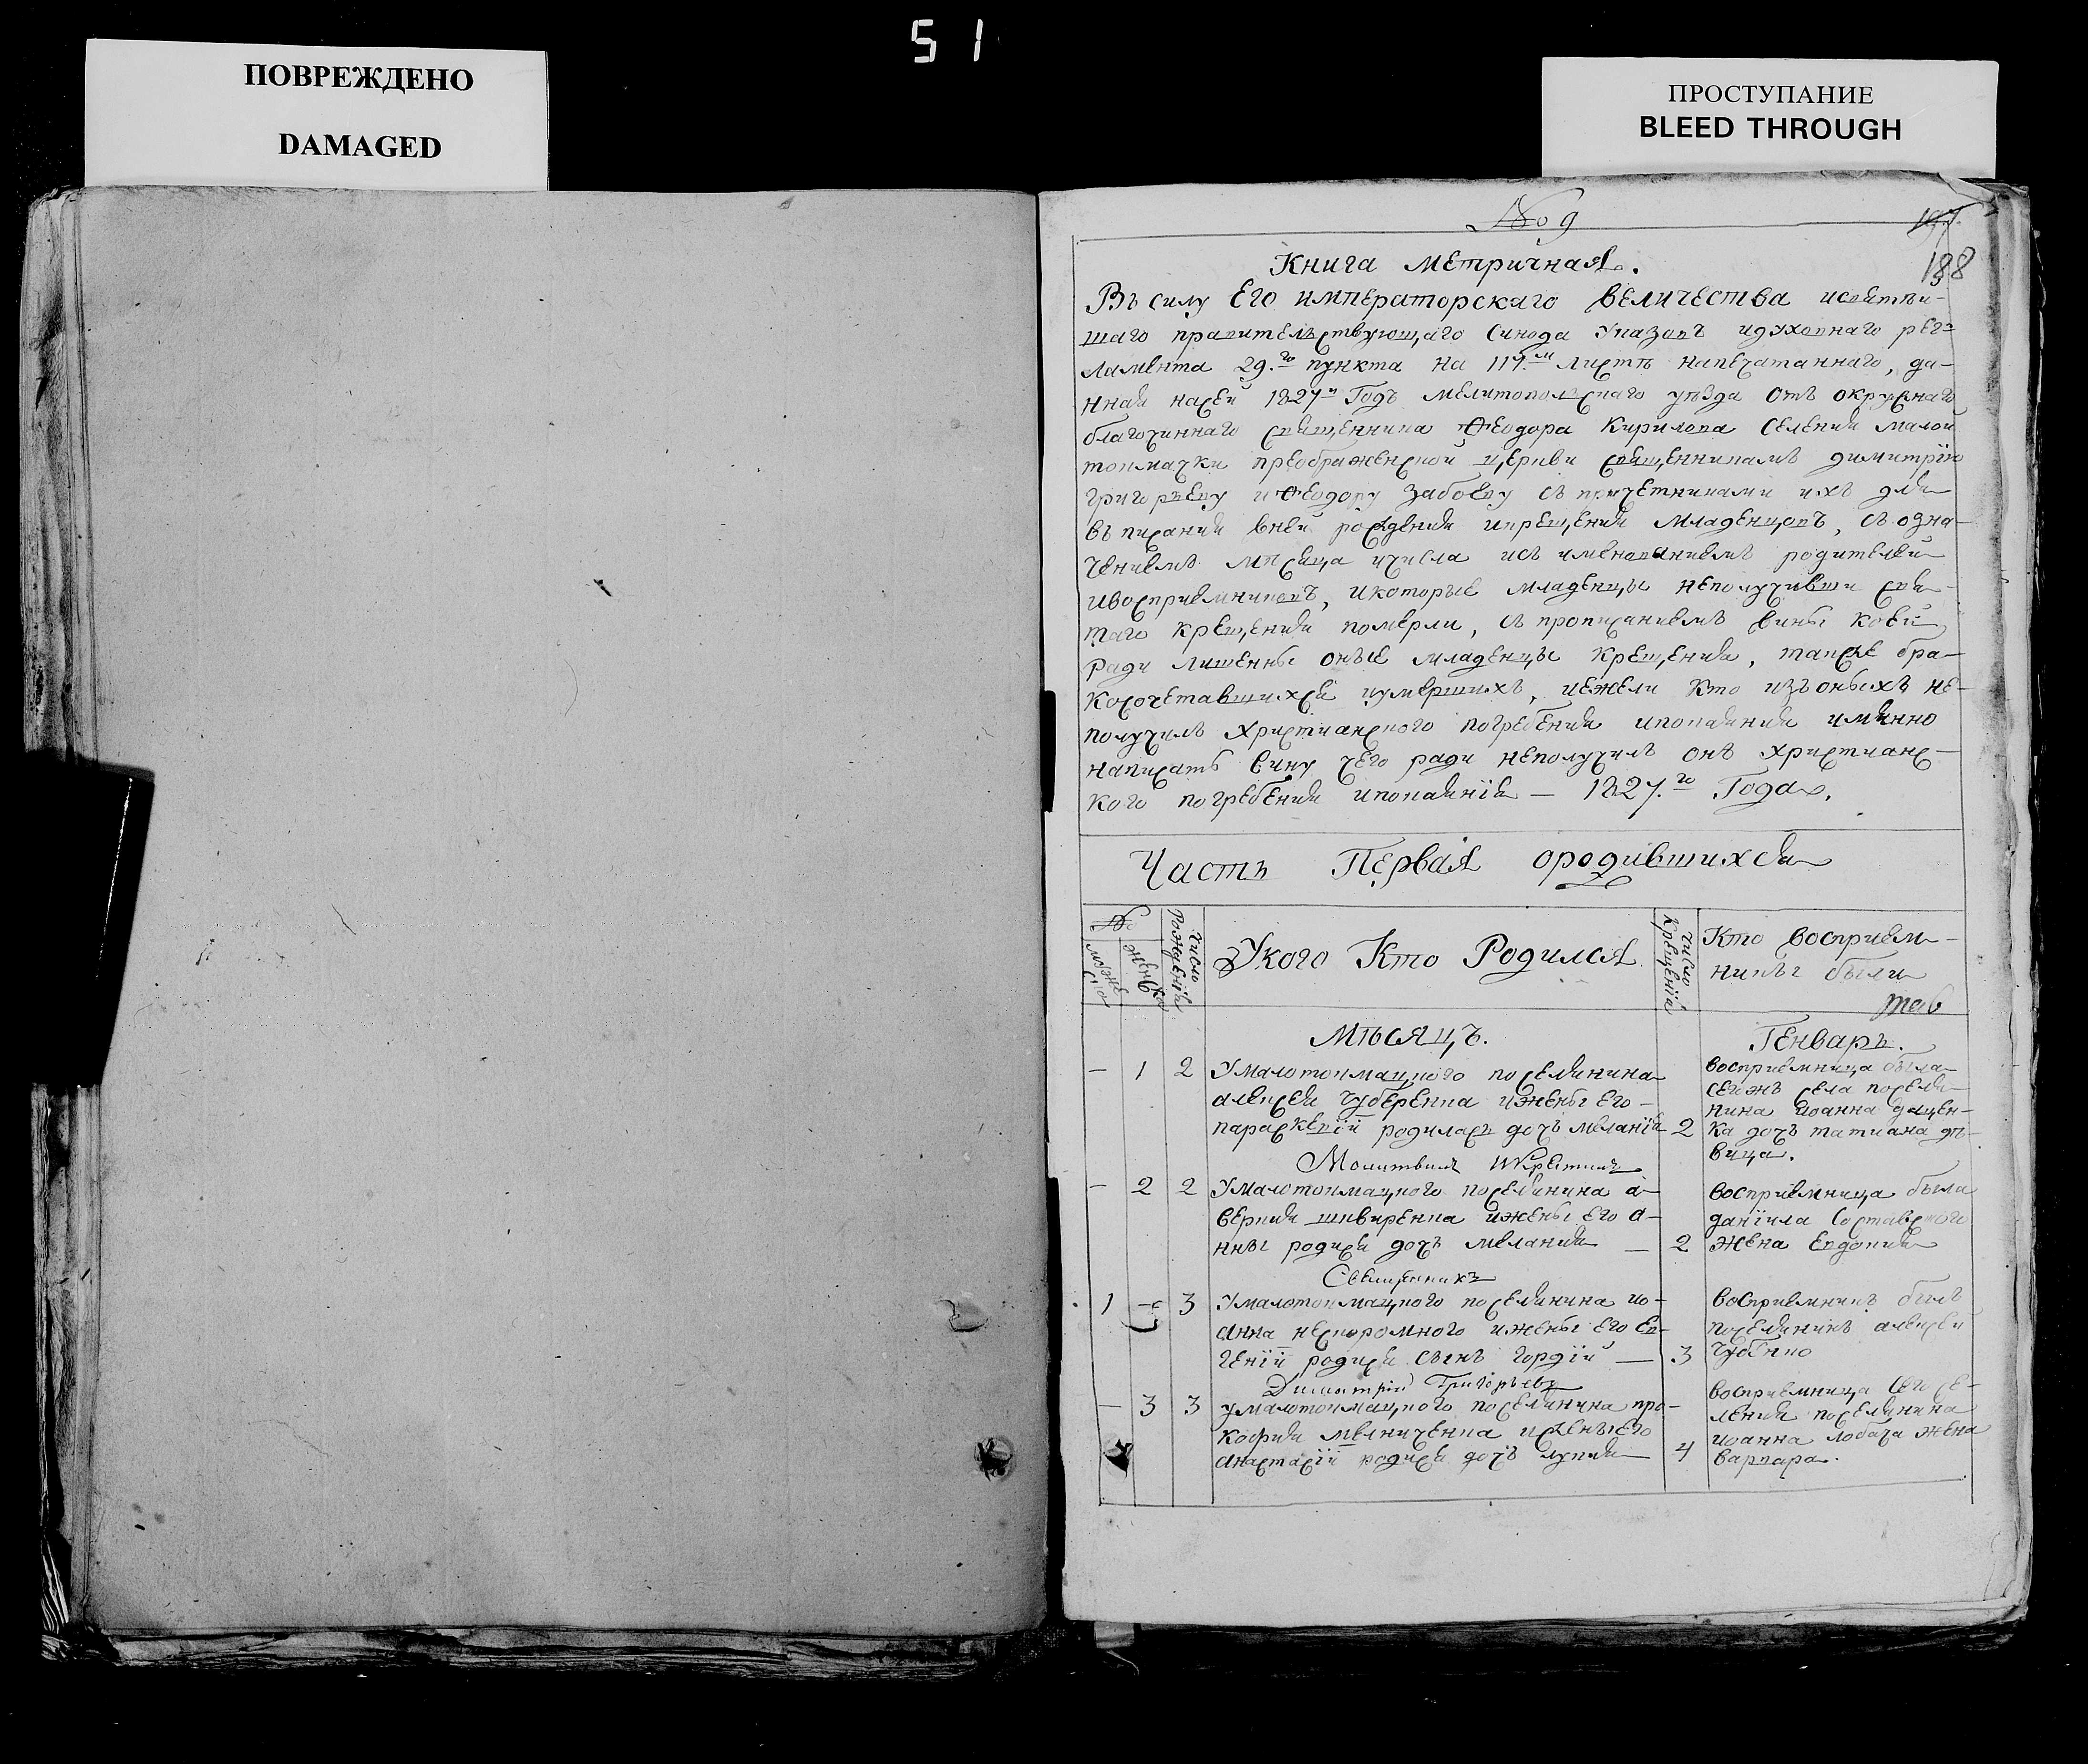 51
ПОВРЕЖДЕНО
DAMAGED
ПРОСТУПАНИЕ
BLEED THROUGH
No 9
197.
188
Книга метричная.
Въ силу Его императорскаго величества исвятѣй-
шаго правительствующаго Синода Указовъ идуховнаго рег-
ламента 29.го пункта на 117.м листѣ напечатаннаго, да-
нная насей 1827й Годъ мелитопольскаго уѣзда отъ окружнаго
благочиннаго священника Феодора Кирилова селения малой
токмачки преображенской церкви священникамъ димитрїю
григорьеву иФеодору Забоеву съ причетниками ихъ для
вписания вней рождения икрещения младенцовъ, съ озна-
чениемъ мѣсяца ичисла исъ именованиемъ родителей
ивосприемниковъ, икоторые младенцы неполучивши свя-
таго крещения померли, съ прописаниемъ вины коей
ради лишенны оные младенцы крещения, также бра-
косочетавшихся иумершихъ, иежели кто изъ оныхъ не-
получилъ христианского погребения ипокаяния имянно
написать вину чего ради неполучилъ онъ христианс-
кого погребения ипокаянїя — 1827.го Года.
Часть Первая ородившихся
№
мужеска
женска
Число Рождения
Укого Кто Родился
Число Крещения
Кто восприем-
ники были
Мѣсяцъ.
Генварь.
— 1 2 Умалотокмацкого поселянина
алексея Губеренка ижены его —
параскевїи родилась дочь меланїя 2
восприемница была
сегожъ села поселя-
нина иоанна дацен-
ка дочь татиана дѣ-
вица.
Молитвилъ Икрестилъ
— 2 2 Умалотокмацкого поселянина а-
веркия шквиренка ижены его а-
нны родися дочь мелания — 2
восприемница была
данїила
жена евдокия
Священникъ
1 — 3 Умалотокмацкого поселянина ио-
анна нескоромного ижены его ев-
генїи родися сынъ гордїй — 3
восприемникъ былъ
поселянинъ алексей
Димитрий Григорьевъ
— 3 3 умалотокмацкого поселянина про-
кофия мелниченка ижены его
анастасїи родися дочь лукия 4
восприемница сего се-
ления поселянина
иоанна лобача жена
варвара.